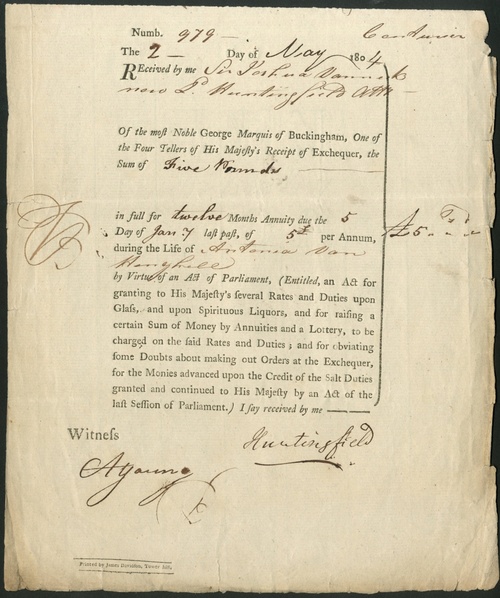 Numb. 979
The 2 Day of May 1804
Received by me Sir Joshua Vanneck
now Ld. Huntingfield
Of the most Noble George Marquis of Buckingham, One of
the Four Tellers of His Majesty's Receipt of Exchequer, the
Sum of Five Pounds
in full for twelve Months Annuity due the 5
Day of Jany last past, of 5£ per Annum, £5 " "
during the Life of Antonia Van
by Virtue of an Act of Parliament, (Entitled, an Act for
granting to His Majesty's several Rates and Duties upon
Glass, and upon Spirituous Liquors, and for raising a
certain Sum of Money by Annuities and a Lottery, to be
charged on the said Rates and Duties; and for obviating
some Doubts about making out Orders at the Exchequer,
for the Monies advanced upon the Credit of the Salt Duties
granted and continued to His Majesty by an Act of the
last Session of Parliament.) I say received by me
Witness Huntingfield
A Young
Printed by James Davidson, Tower Hill.